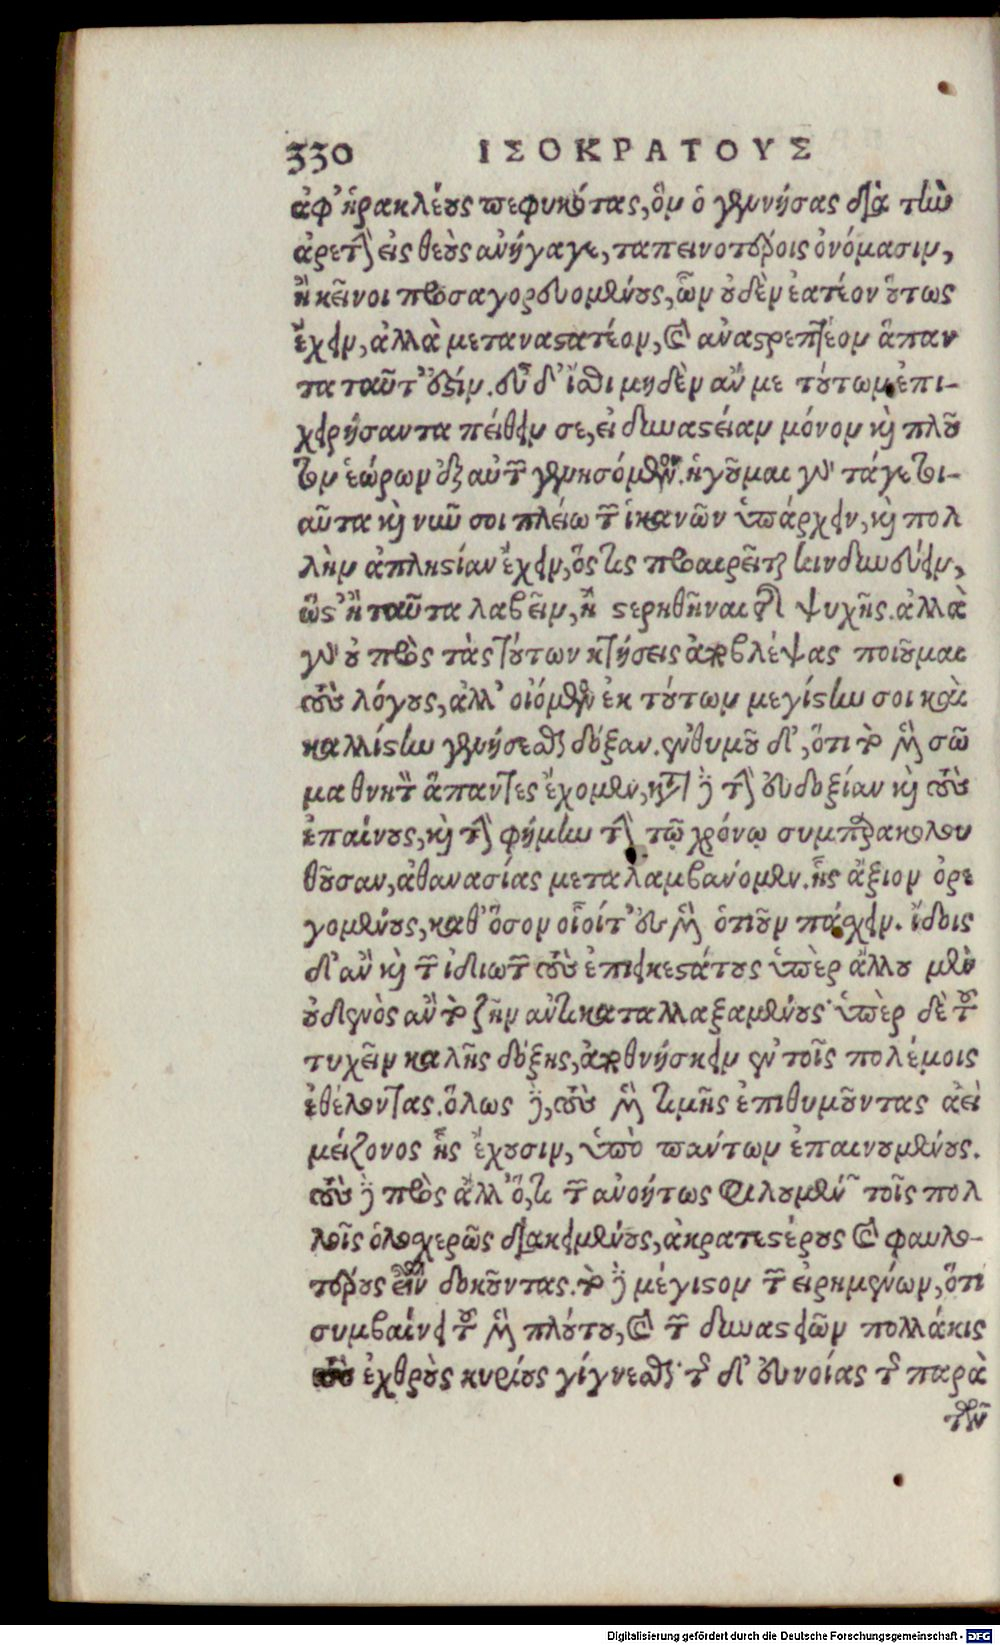 330 ΙΣΟΚΡΑΤΟΥΣ
ἀφ' ἡρακλέους πεφυκότας, ὃν ὁ γεννήσας διὰ τὴν
ἀρετὴν εἰς θεοὺς ἀνήγαγε, ταπεινοτέροις ὀνόμασιν,
ἢ κεῖνοι προσαγορευομένους, ὧν οὐδὲν ἐατέον οὕτως
ἔχειν, ἀλλὰ μεταναστατέον, καὶ ἀναστρεπτέον ἅπαν
τα ταῦτ' ἐστίν. εὖ δ' ἴσθι μηδὲν ἄν με τούτων ἐπι-
χειρήσαντα πείθειν σε, εἰ δυναστείαν μόνον καὶ πλοῦ
τον ἑώρων ἐξ αὐτῶν γενησόμενον. ἡγοῦμαι γὰρ τάγε τοι-
αῦτα καὶ νῦν σοι πλείω τῶν ἱκανῶν ὑπάρχειν, καὶ πολ
λὴν ἀπληστίαν ἔχειν, ὅστις προαιρεῖται κινδυνεύειν,
ὥστ' ἢ ταῦτα λαβεῖν, ἢ στερηθῆναι τῆς ψυχῆς. ἀλλὰ
γὰρ οὐ πρὸς τὰς τούτων κτήσεις ἀποβλέψας ποιοῦμαι
τοὺς λόγους, ἀλλ' οἰόμενος ἐκ τούτων μεγίστην σοι καὶ
καλλίστην γενήσεσθαι δόξαν. ἐνθυμοῦ δ', ὅτι τὸ μὲν σῶ
μα θνητὸν ἅπαντες ἔχομεν, κατὰ δὲ τὴν εὐδοξίαν καὶ τοὺς
ἐπαίνους, καὶ τὴν φήμην τὴν τῷ χρόνῳ συμπαρακολου
θοῦσαν, ἀθανασίας μεταλαμβάνομεν. ἧς ἄξιον ὀρε
γομένους, καθ' ὅσον οἷοίτ' ἐσμὲν ὁτιοῦν πάσχειν. ἴδοις
δ' ἂν καὶ τῶν ἰδιωτῶν τοὺς ἐπιεικεστάτους ὑπὲρ ἄλλου μὲν
οὐδενὸς ἂν τὸ ζῆν ἀντικαταλλαξαμένους· ὑπὲρ δὲ τοῦ
τυχεῖν καλῆς δόξης, ἀποθνήσκειν ἐν τοῖς πολέμοις
ἐθέλοντας. ὅλως δὲ, τοὺς μὲν τιμῆς ἐπιθυμοῦντας ἀεὶ
μείζονος ἧς ἔχουσιν, ὑπὸ πάντων ἐπαινουμένους.
τοὺς δὲ πρὸς ἄλλ' ὅ,τι τῶν ἀνοήτως φιλουμένων τοῖς πολ
λοῖς ὁλοσχερῶς διακειμένους, ἀκρατεστέρους καὶ φαυλο-
τέρους εἶναι δοκοῦντας. τὸ δὲ μέγιστον τῶν εἰρημένων, ὅτι
συμβαίνει τοῦ μὲν πλούτου, καὶ τῶν δυναστειῶν πολλάκις
τοὺς ἐχθροὺς κυρίους γίγνεσθαι· τῆς δ' εὐνοίας τῆς παρὰ
τῶν
Digitalisierung gefördert durch die Deutsche Forschungsgemeinschaft - DFG